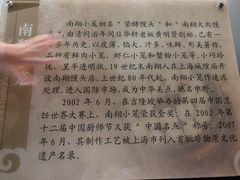 南翔小笼初名"紧酵馒头"和"南翔大肉馒
头",由清同治年间日华轩老板黄明贤创始,已有一
百多年历史,以皮薄、馅大、汁多、味鲜、形美著称,
品种有鲜肉小笼、虾仁小笼和蟹粉小笼等,小巧玲
珑,呈半透明状。19世纪末南翔人在上海城隍庙开
设南翔馒头店,上世纪80年代起,南翔小笼作速冻
处理,进入国际市场,成为中华美点,驰名中外。
2002年6月,在吉隆坡举办的第四届中国烹
饪世界大赛上,南翔小笼荣获金奖;在2002年第
十二届中国厨师节又获"中国名点"称号;2007
年6月,其制作工艺被上海市列入首批非物质文化
遗产名录。
南